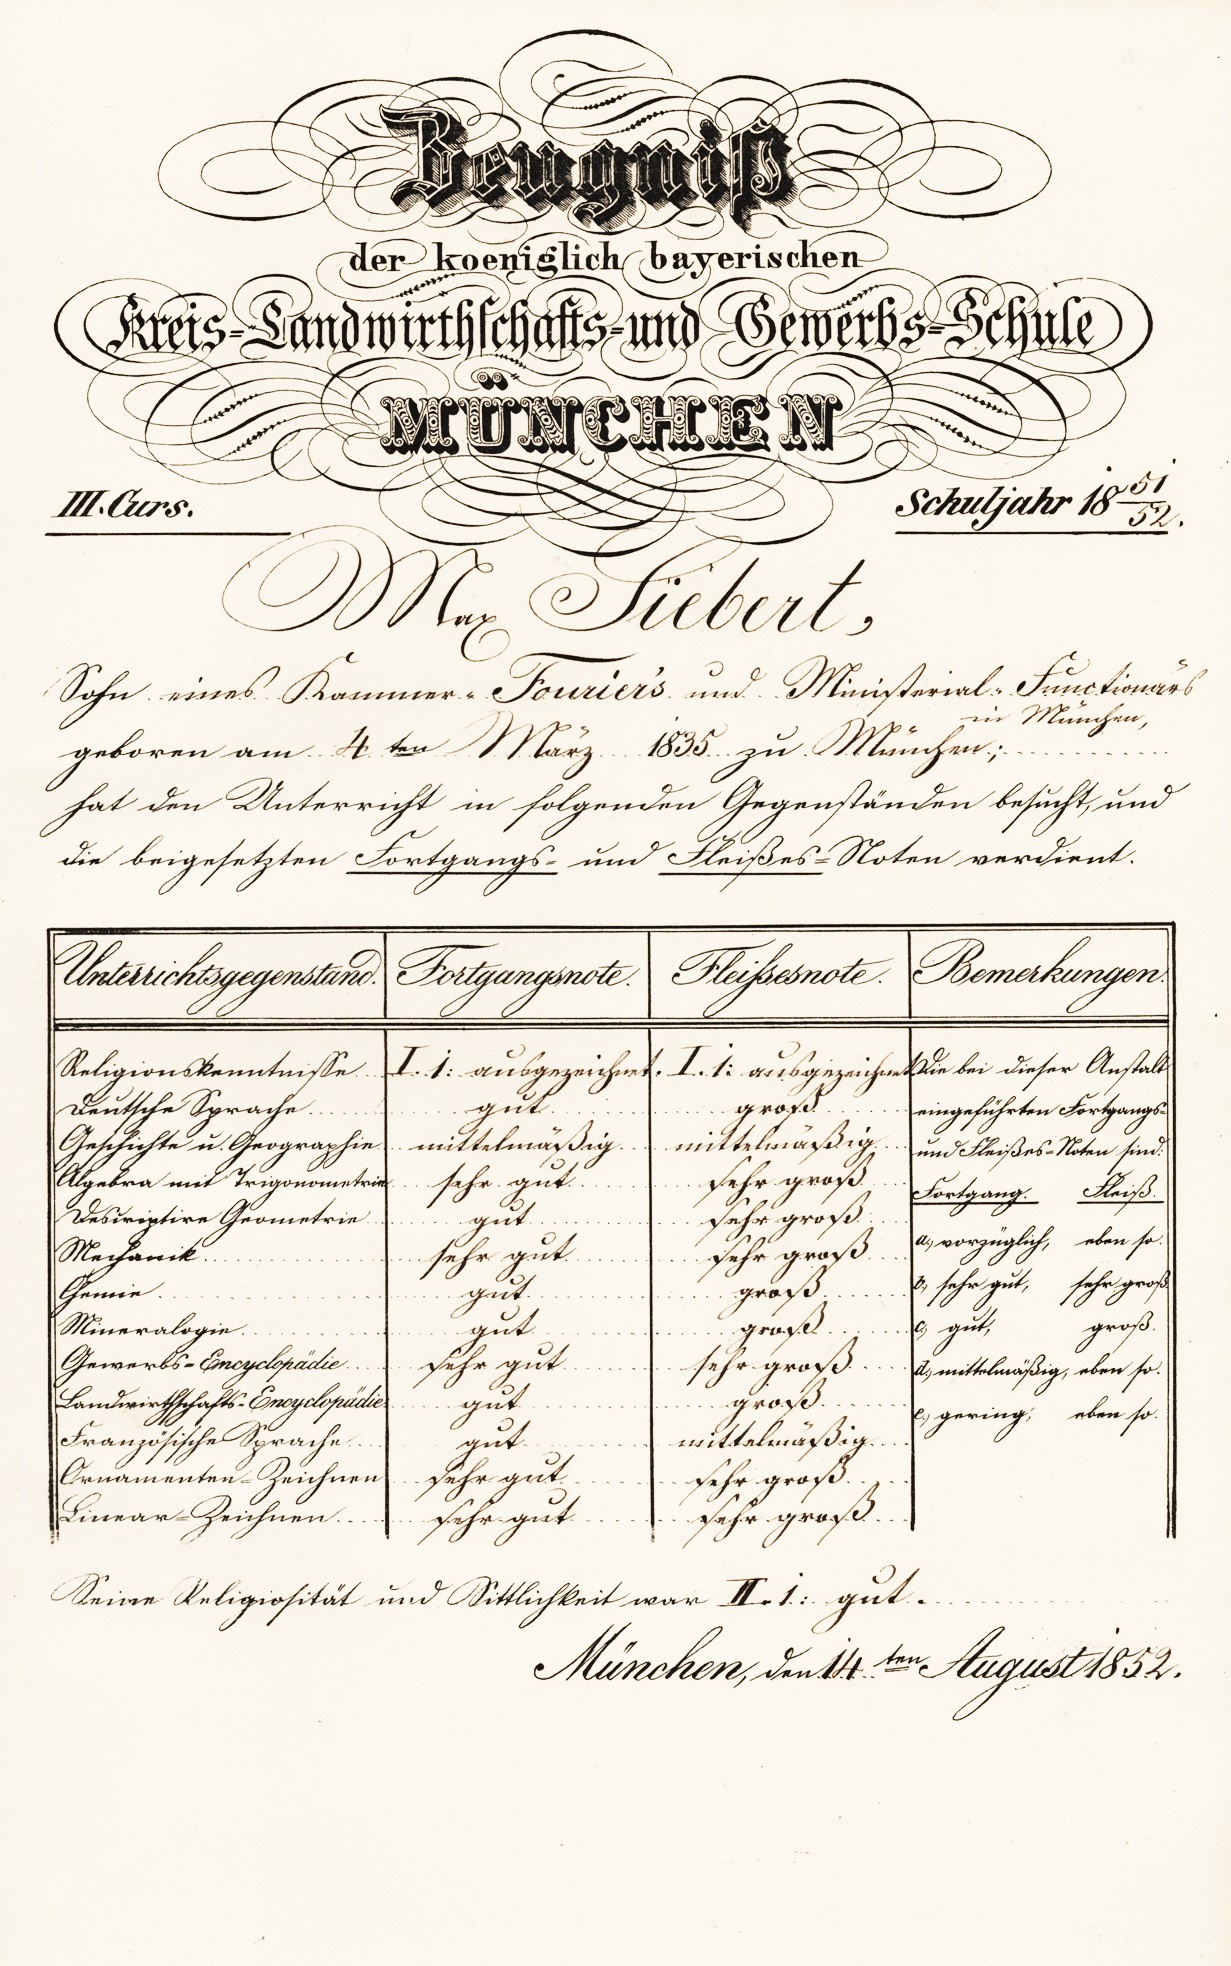 Zeugniß
der koeniglich bayerischen
Kreis-Landwirthschafts-und Gewerbs-Schule
MÜNCHEN
III. Curs.
Schuljahr 18 51/52.
Max Siebert,
Sohn eines Kammer-Fouriers und Ministerial-Functionärs
in München,
geboren am 4ten März 1835 zu München;
hat den Unterricht in folgenden Gegenständen besucht, und
die beigesetzten Fortgangs- und Fleißes-Noten verdient.
Unterrichtsgegenstand. Fortgangsnote. Fleissesnote. Bemerkungen.
Religionskenntnisse I. 1: ausgezeichnet. I. 1: ausgezeichnet Die bei dieser Anstalt
Deutsche Sprache gut groß eingeführten Fortgangs-
Geschichte u. Geographie mittelmäßig mittelmäßig und Fleißes-Noten sind:
Algebra mit Trigonometrie sehr gut sehr groß Fortgang. Fleiß.
Descriptive Geometrie gut sehr groß
Mechanik sehr gut sehr groß a., vorzüglich, eben so.
Chemie gut groß b., sehr gut, sehr groß
Mineralogie gut groß c., gut, groß.
Gewerbs-Encyclopädie sehr gut sehr groß d., mittelmäßig, eben so.
Landwirthschafts-Encyclopädie gut groß e., gering, eben so.
Französische Sprache gut mittelmäßig
Ornamenten-Zeichnen sehr gut sehr groß
Linear-Zeichnen sehr gut sehr groß
Seine Religiosität und Sittlichkeit war II. 1: gut.
München, den 14ten August 1852.